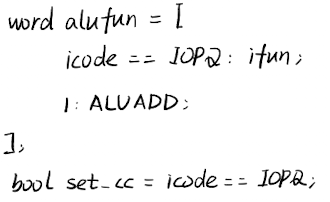 word alufun = [
icode == IOPQ: ifun;
1: ALUADD;
];
bool set_cc = icode == IOPQ;